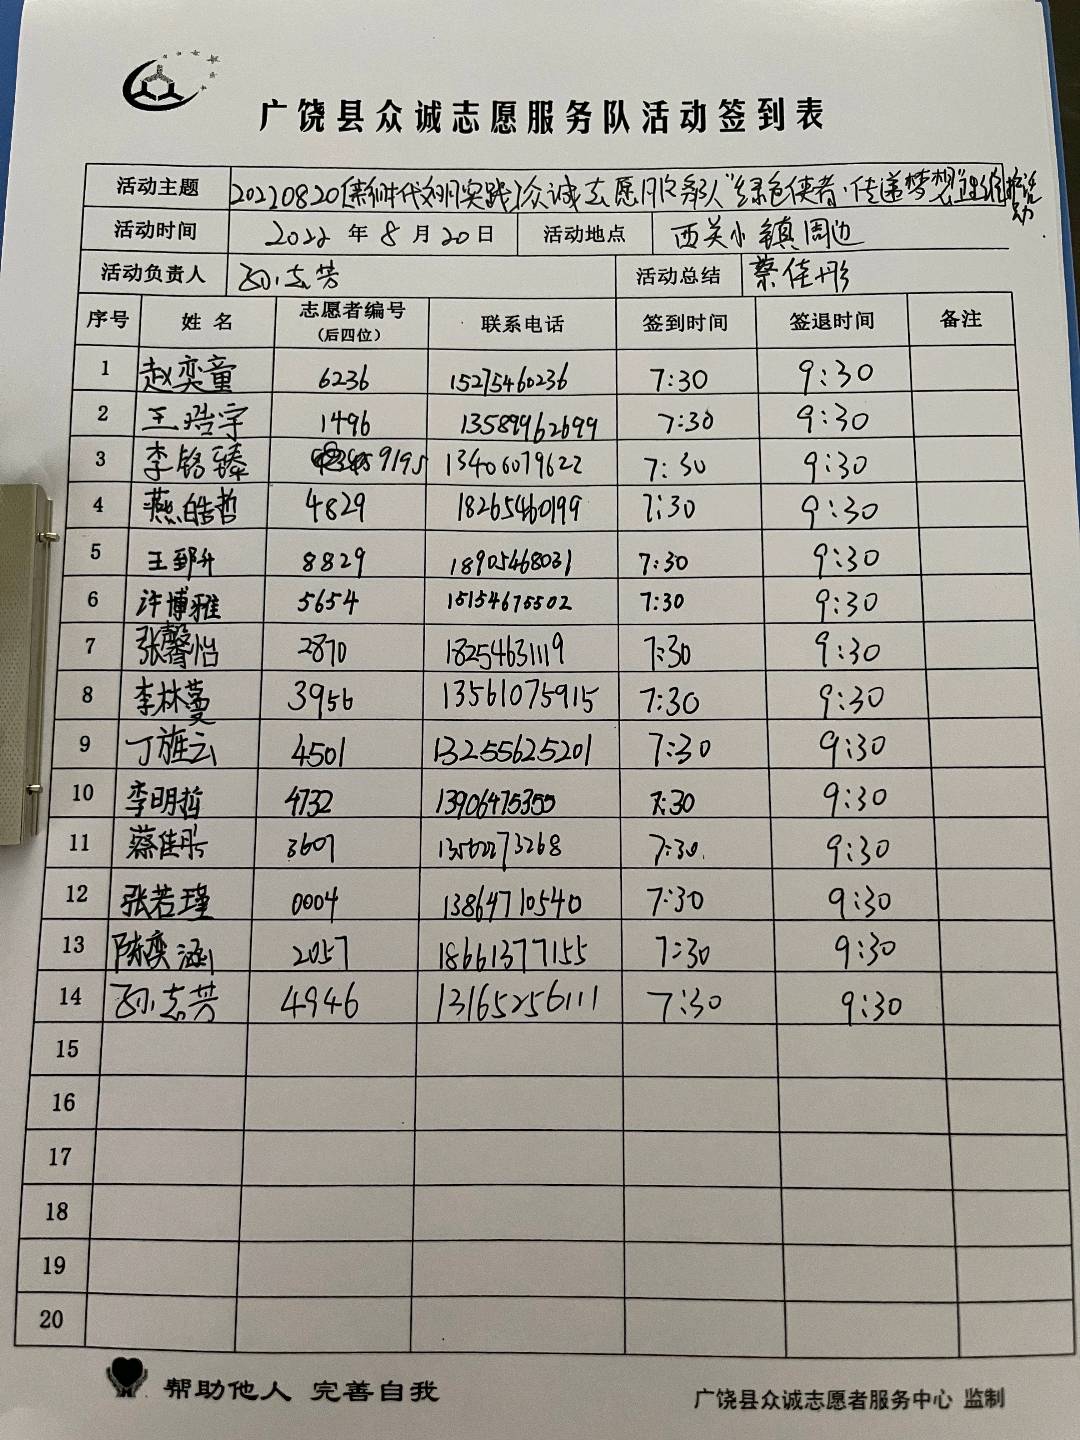 广饶县众诚志愿服务队活动签到表
活动主题 20220820(新时代文明实践)众诚志愿服务队"绿色使者·传递梦想"活动
活动时间 2022 年 8 月 20 日 活动地点 西关小镇周边
活动负责人 孙志芳 活动总结 蔡佳彤
序号 姓名 志愿者编号(后四位) 联系电话 签到时间 签退时间 备注
1 赵奕童 6236 15275460236 7:30 9:30
2 王浩宇 1496 13589962699 7:30 9:30
3 李铭臻 9195 13406079622 7:30 9:30
4 燕皓哲 4829 18265460199 7:30 9:30
5 王邹升 8829 18905468031 7:30 9:30
6 许博雅 5654 15154675502 7:30 9:30
7 张馨怡 2870 18254631119 7:30 9:30
8 李林蔓 3956 13561075915 7:30 9:30
9 丁旌云 4501 13255625201 7:30 9:30
10 李明哲 4732 13906475355 7:30 9:30
11 蔡佳彤 3607 13562273268 7:30 9:30
12 张若瑾 0004 13864710540 7:30 9:30
13 陈奕涵 2057 18661377155 7:30 9:30
14 孙志芳 4946 13165256111 7:30 9:30
15
16
17
18
19
20
帮助他人 完善自我
广饶县众诚志愿者服务中心 监制